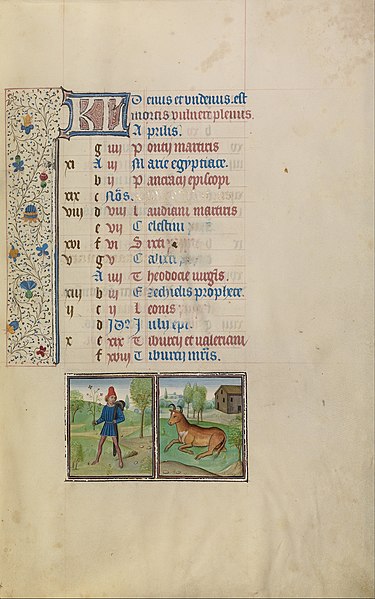 KL Denus et undenus est
mortis vulnere plenus.
Aprilis.
g iiii Pontij martiris
xi A iii Marie egyptiace.
b ii Pancracij episcopi
xix c Nōs.
viii d viii Claudiani martiris
e vii Celestini
xvi f vi Sixti
v g v Calixti
A iiii Theodocie virgīs.
xiii b iii Ezechielis prophete.
ii c ii Leonis.
d Idꝰ Iulij epī.
x e xix Tiburcij et valeriani
f xviii Tiburcij mr̄is.